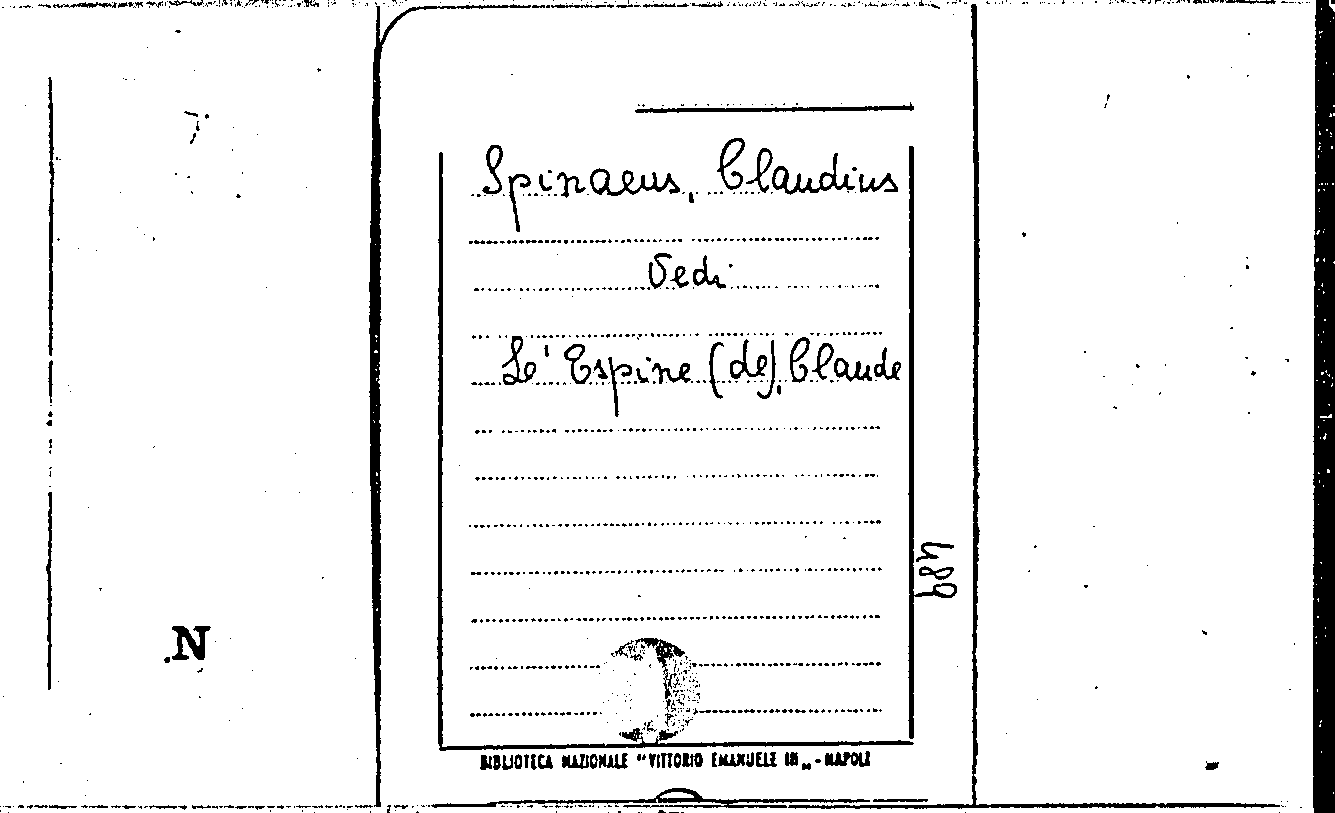 Spinaeus, Claudius
Vedi
Le' Espine (de), Claude
489
N
BIBLIOTECA NAZIONALE "VITTORIO EMANUELE III„ - NAPOLI